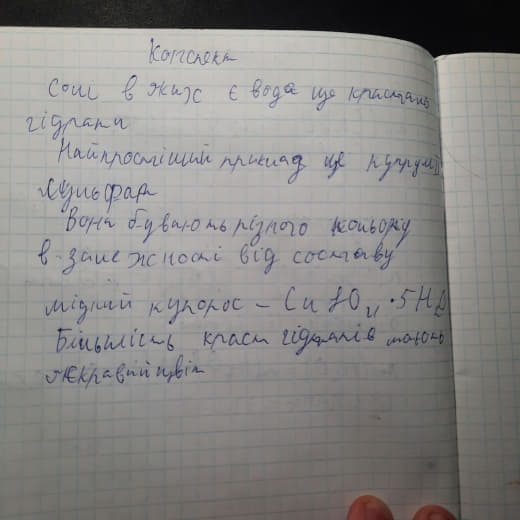 Конспект
Солі в яких є вода це кристало
гідрати
Найпростіший приклад це купрум II
сульфат
Вони бувають різного кольору
в залежності від составу
мідний купорос – CuSO4 · 5H2O
Більшість крист гідратів мають
яскравий цвіт